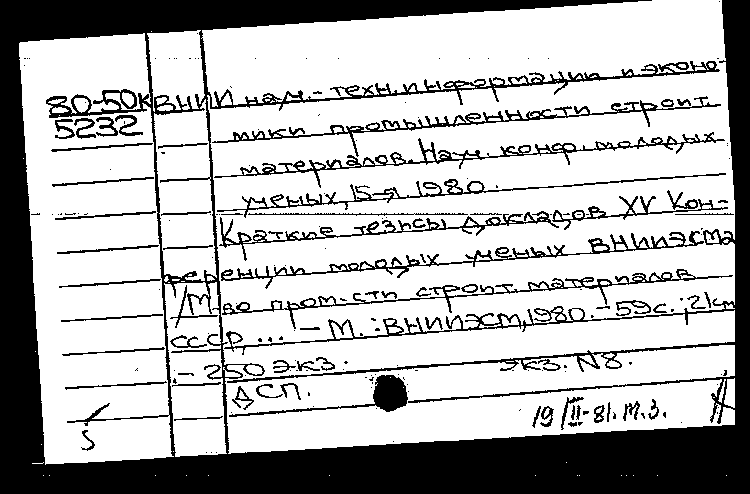 80-50к ВНИИ науч.-техн. информации и эконо-
5232 мики промышленности строит.
материалов. Науч. конф. молодых
ученых, 15-я. 1980.
Краткие тезисы докладов XV Кон-
ференции молодых ученых ВНИИЭСМа
/М-во пром-сти строит. материалов
СССР, ... – М. : ВНИИЭСМ, 1980. – 59 с. ; 21 см
. – 250 экз. экз. N8.
ДСП.
19/II-81. М.З.